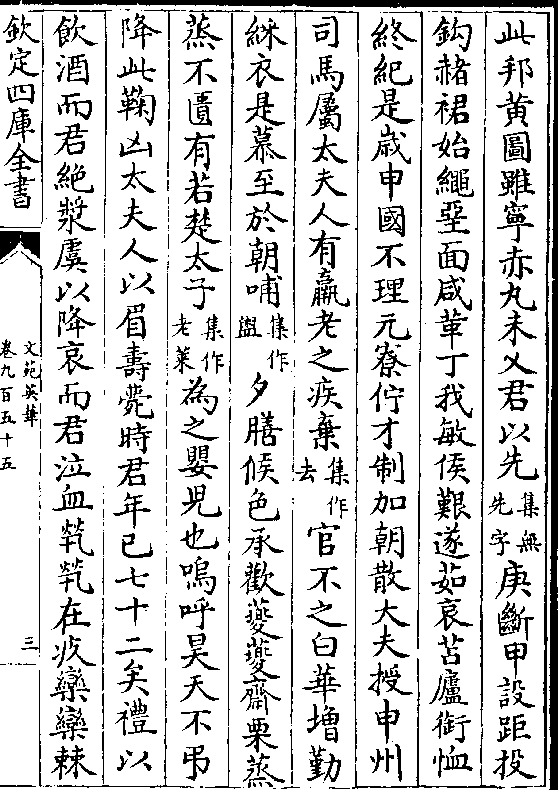 此邦黄圖雖寧赤丸未乂君以先集無先字庚斷甲設距投
鈎赭裙始繩堊面咸革丁我敏侯艱遂茹哀苫廬銜恤
終紀是歲申國不理元寮佇才制加朝散大夫授申州
司馬屬太夫人有羸老之疾棄集作去官不之白華増勤
綵衣是慕至於朝哺集作盥夕膳候色承歡夔夔齋栗蒸
蒸不匱有若楚太子集作老萊為之嬰兒也嗚呼昊天不弔
降此鞠凶太夫人以眉壽薨時君年已七十二矣禮以
飲酒而君絶漿虞以降哀而君泣血煢煢在疚欒欒棘
欽定四庫全書
文苑英華
卷九百五十五
三